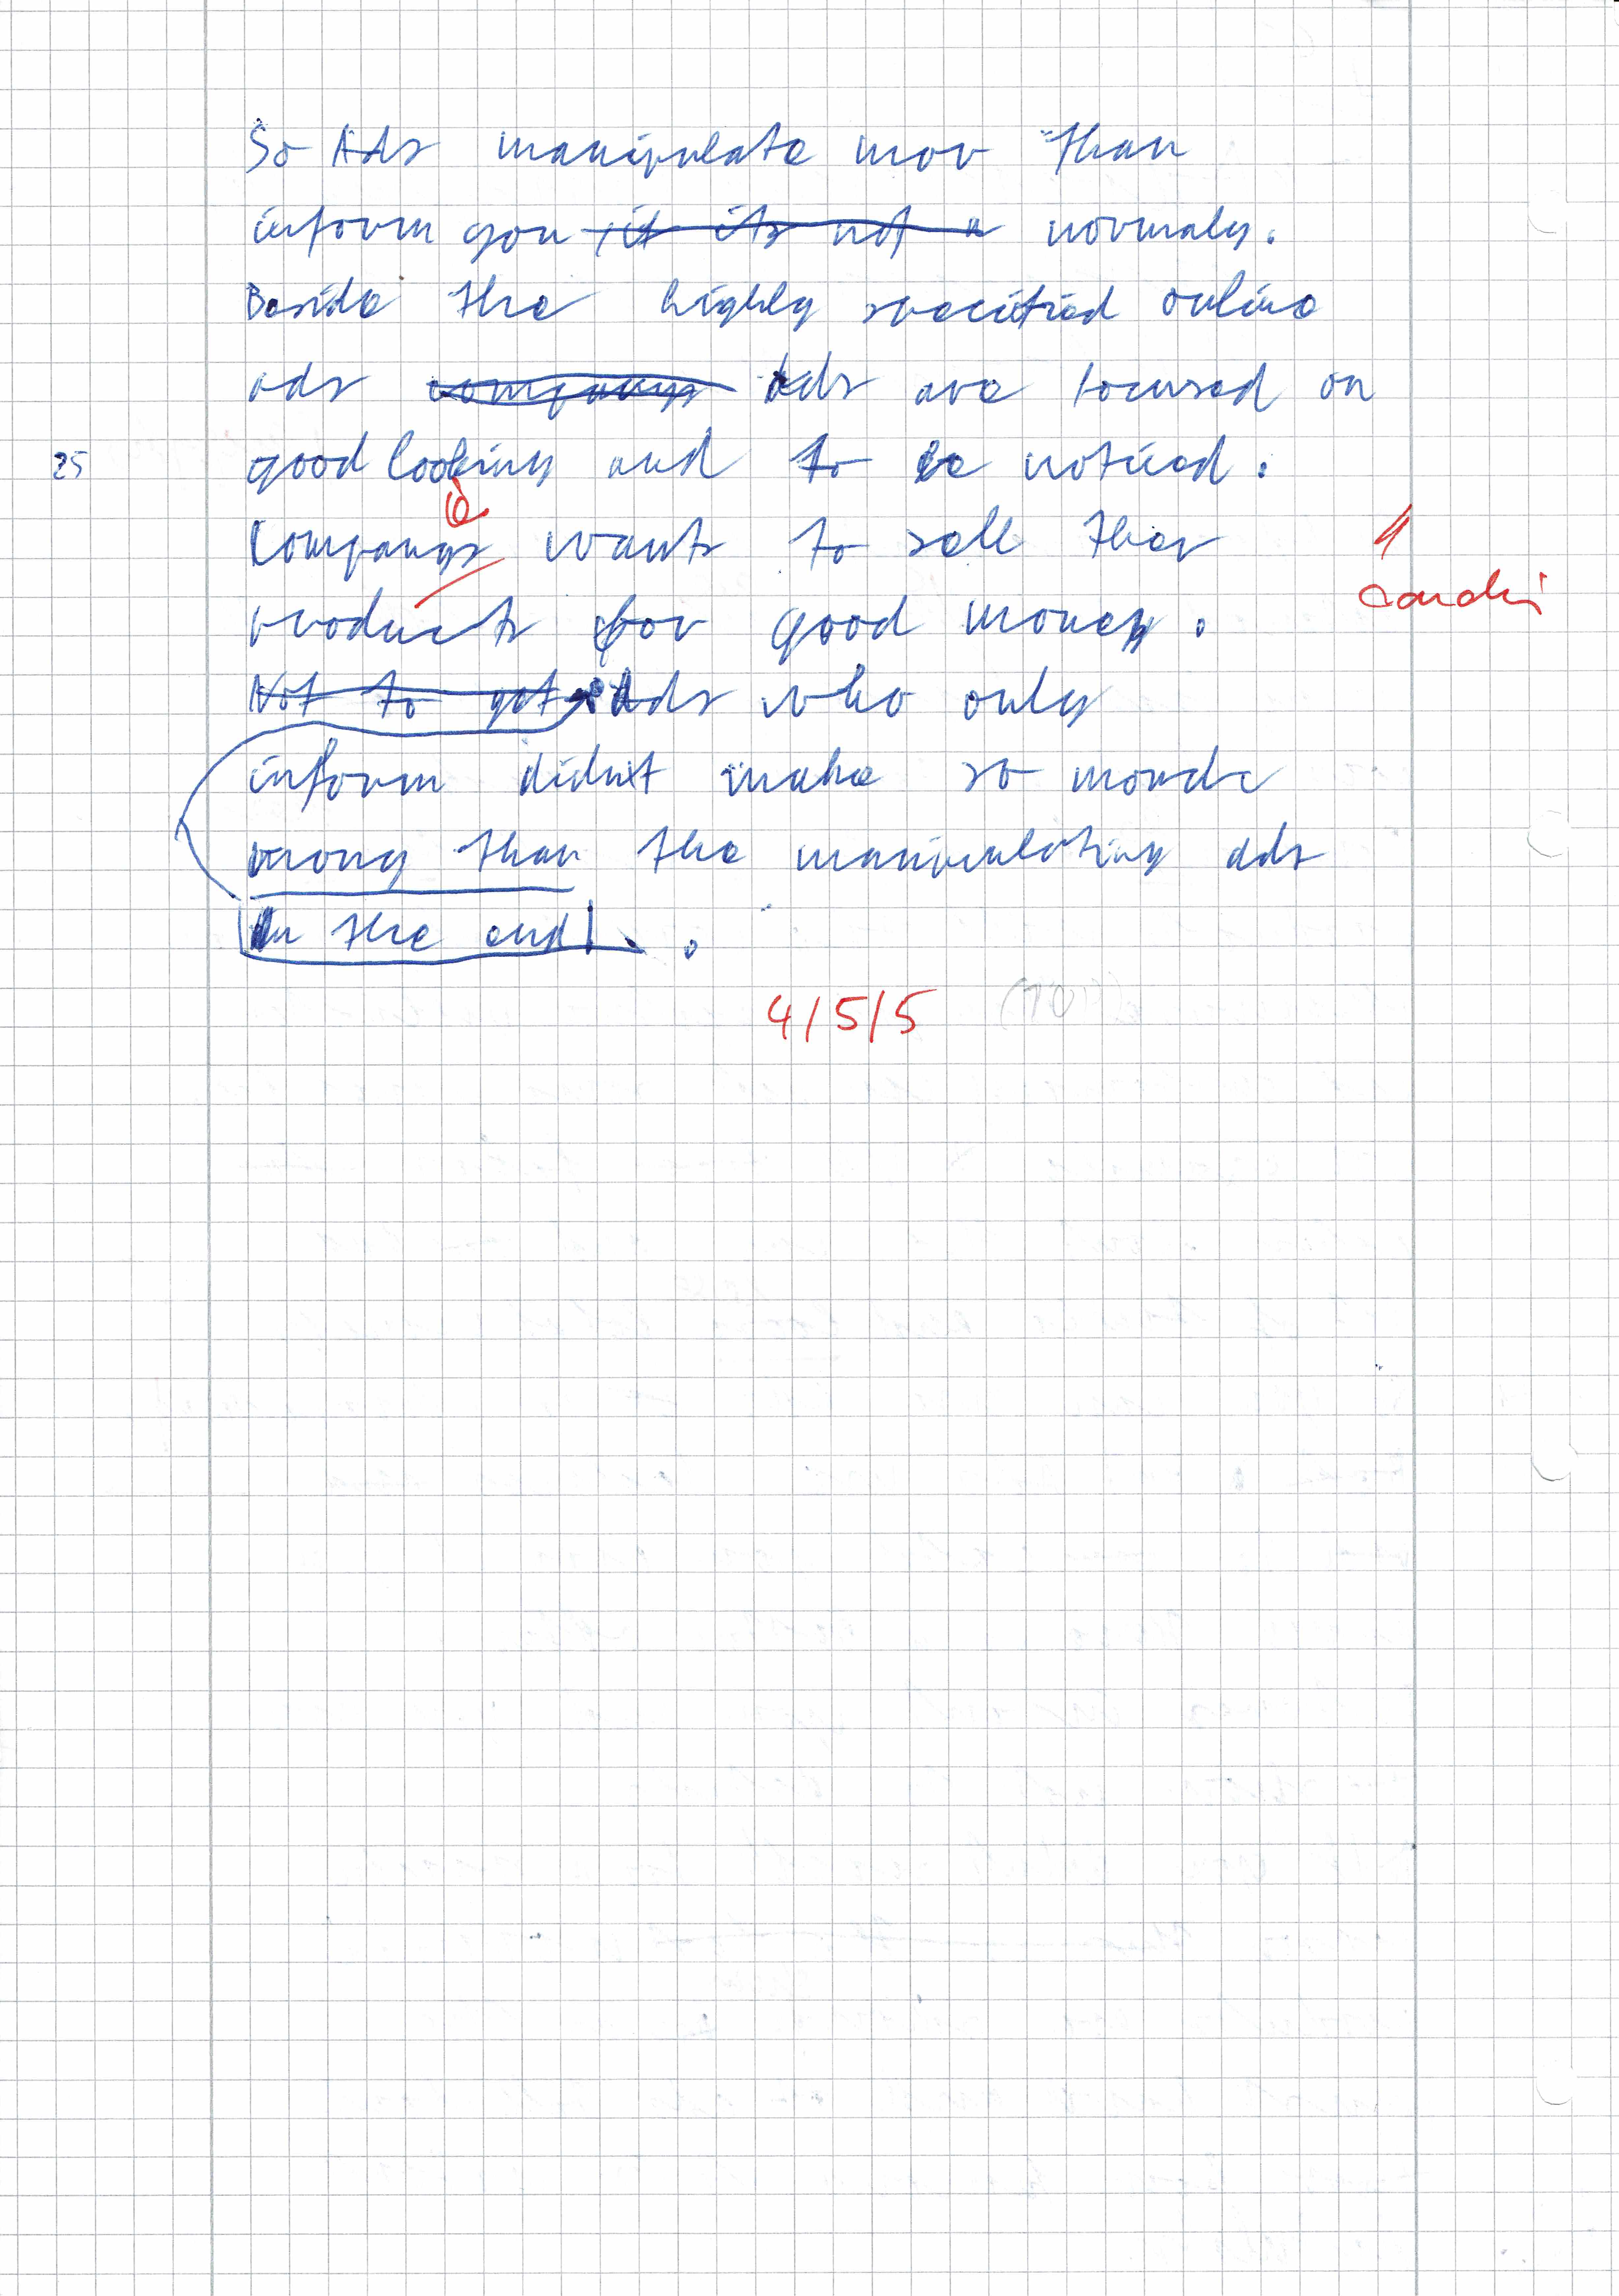 So Ads manipulate mor than
inform you it its not a normaly.
Beside the highly specified online
ads companys Ads are focused on
25 good looking and to be noticed.
Companys wants to sell ther
products for good money.
Not to get Ads who only
inform didn't make so
mony than the manipulating ads
In the end.
4/5/5